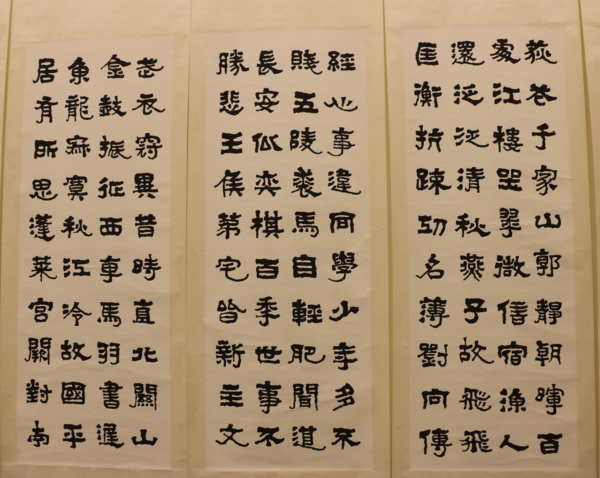 荻花千家山郭靜朝暉百
處江樓坐翠微信宿漁人
還泛泛清秋燕子故飛飛
匡衡抗疏功名薄劉向傳
經心事違同學少年多不
賤五陵裘馬自輕肥聞道
長安似奕棋百年世事不
勝悲王侯第宅皆新主文
武衣冠異昔時直北關山
金鼓振征西車馬羽書遲
魚龍寂寞秋江冷故國平
居有所思蓬萊宮闕對南